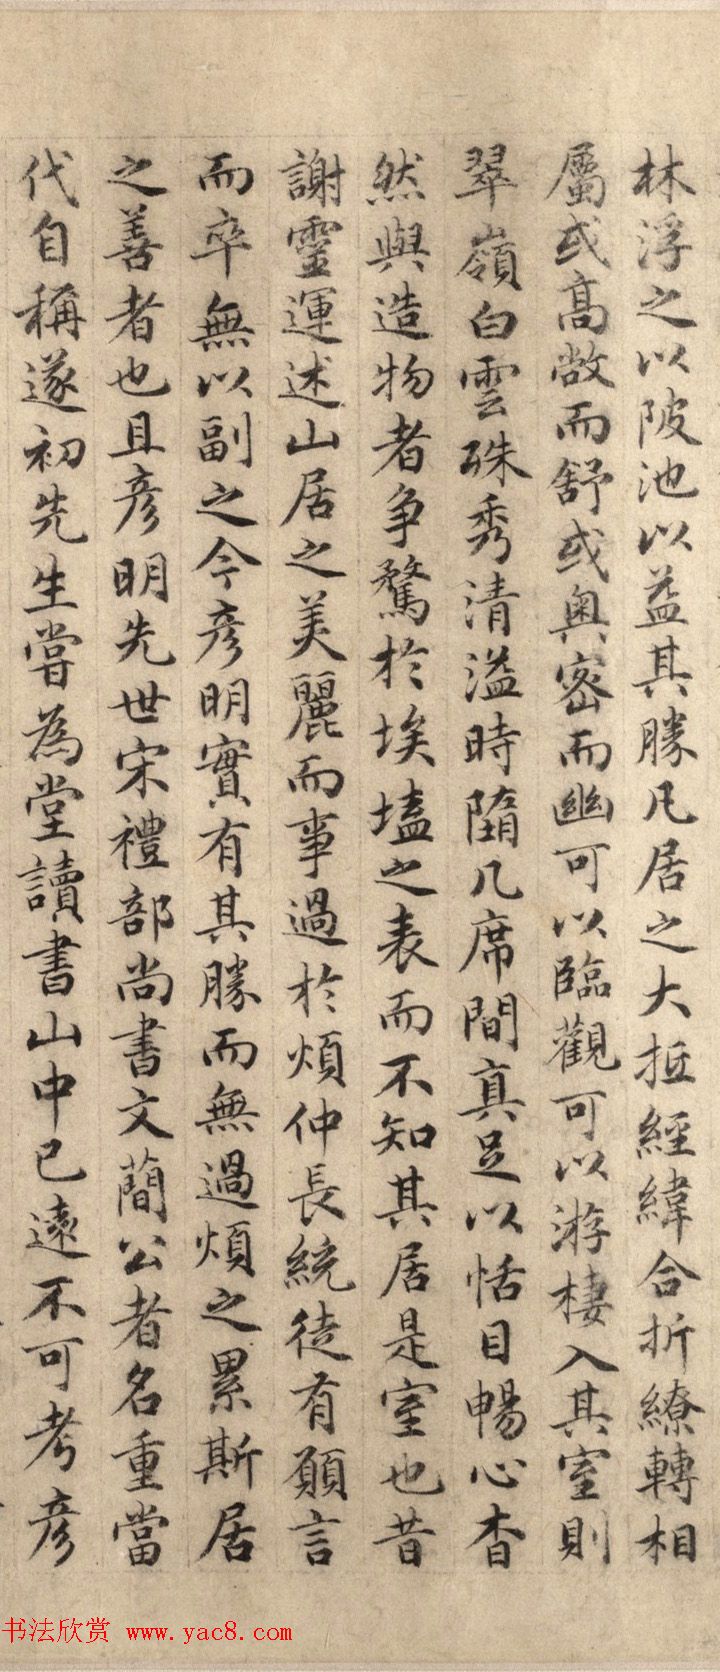 林浮之以陂池以益其勝凡居之大抵經緯合折繚轉相
屬或高敞而舒或奥密而幽可以臨觀可以游棲入其室則
翠嶺白雲硃秀清溢時隨几席間真足以恬目暢心杳
然與造物者争騖於埃壒之表而不知其居是室也昔
謝靈運述山居之美麗而事過於煩仲長統徒有願言
而卒無以副之今彦明實有其勝而無過煩之累斯居
之善者也且彦明先世宋禮部尚書文蕳公者名重當
代自稱遂初先生嘗為堂讀書山中已遠不可考彦
书法欣赏 www.yac8.com